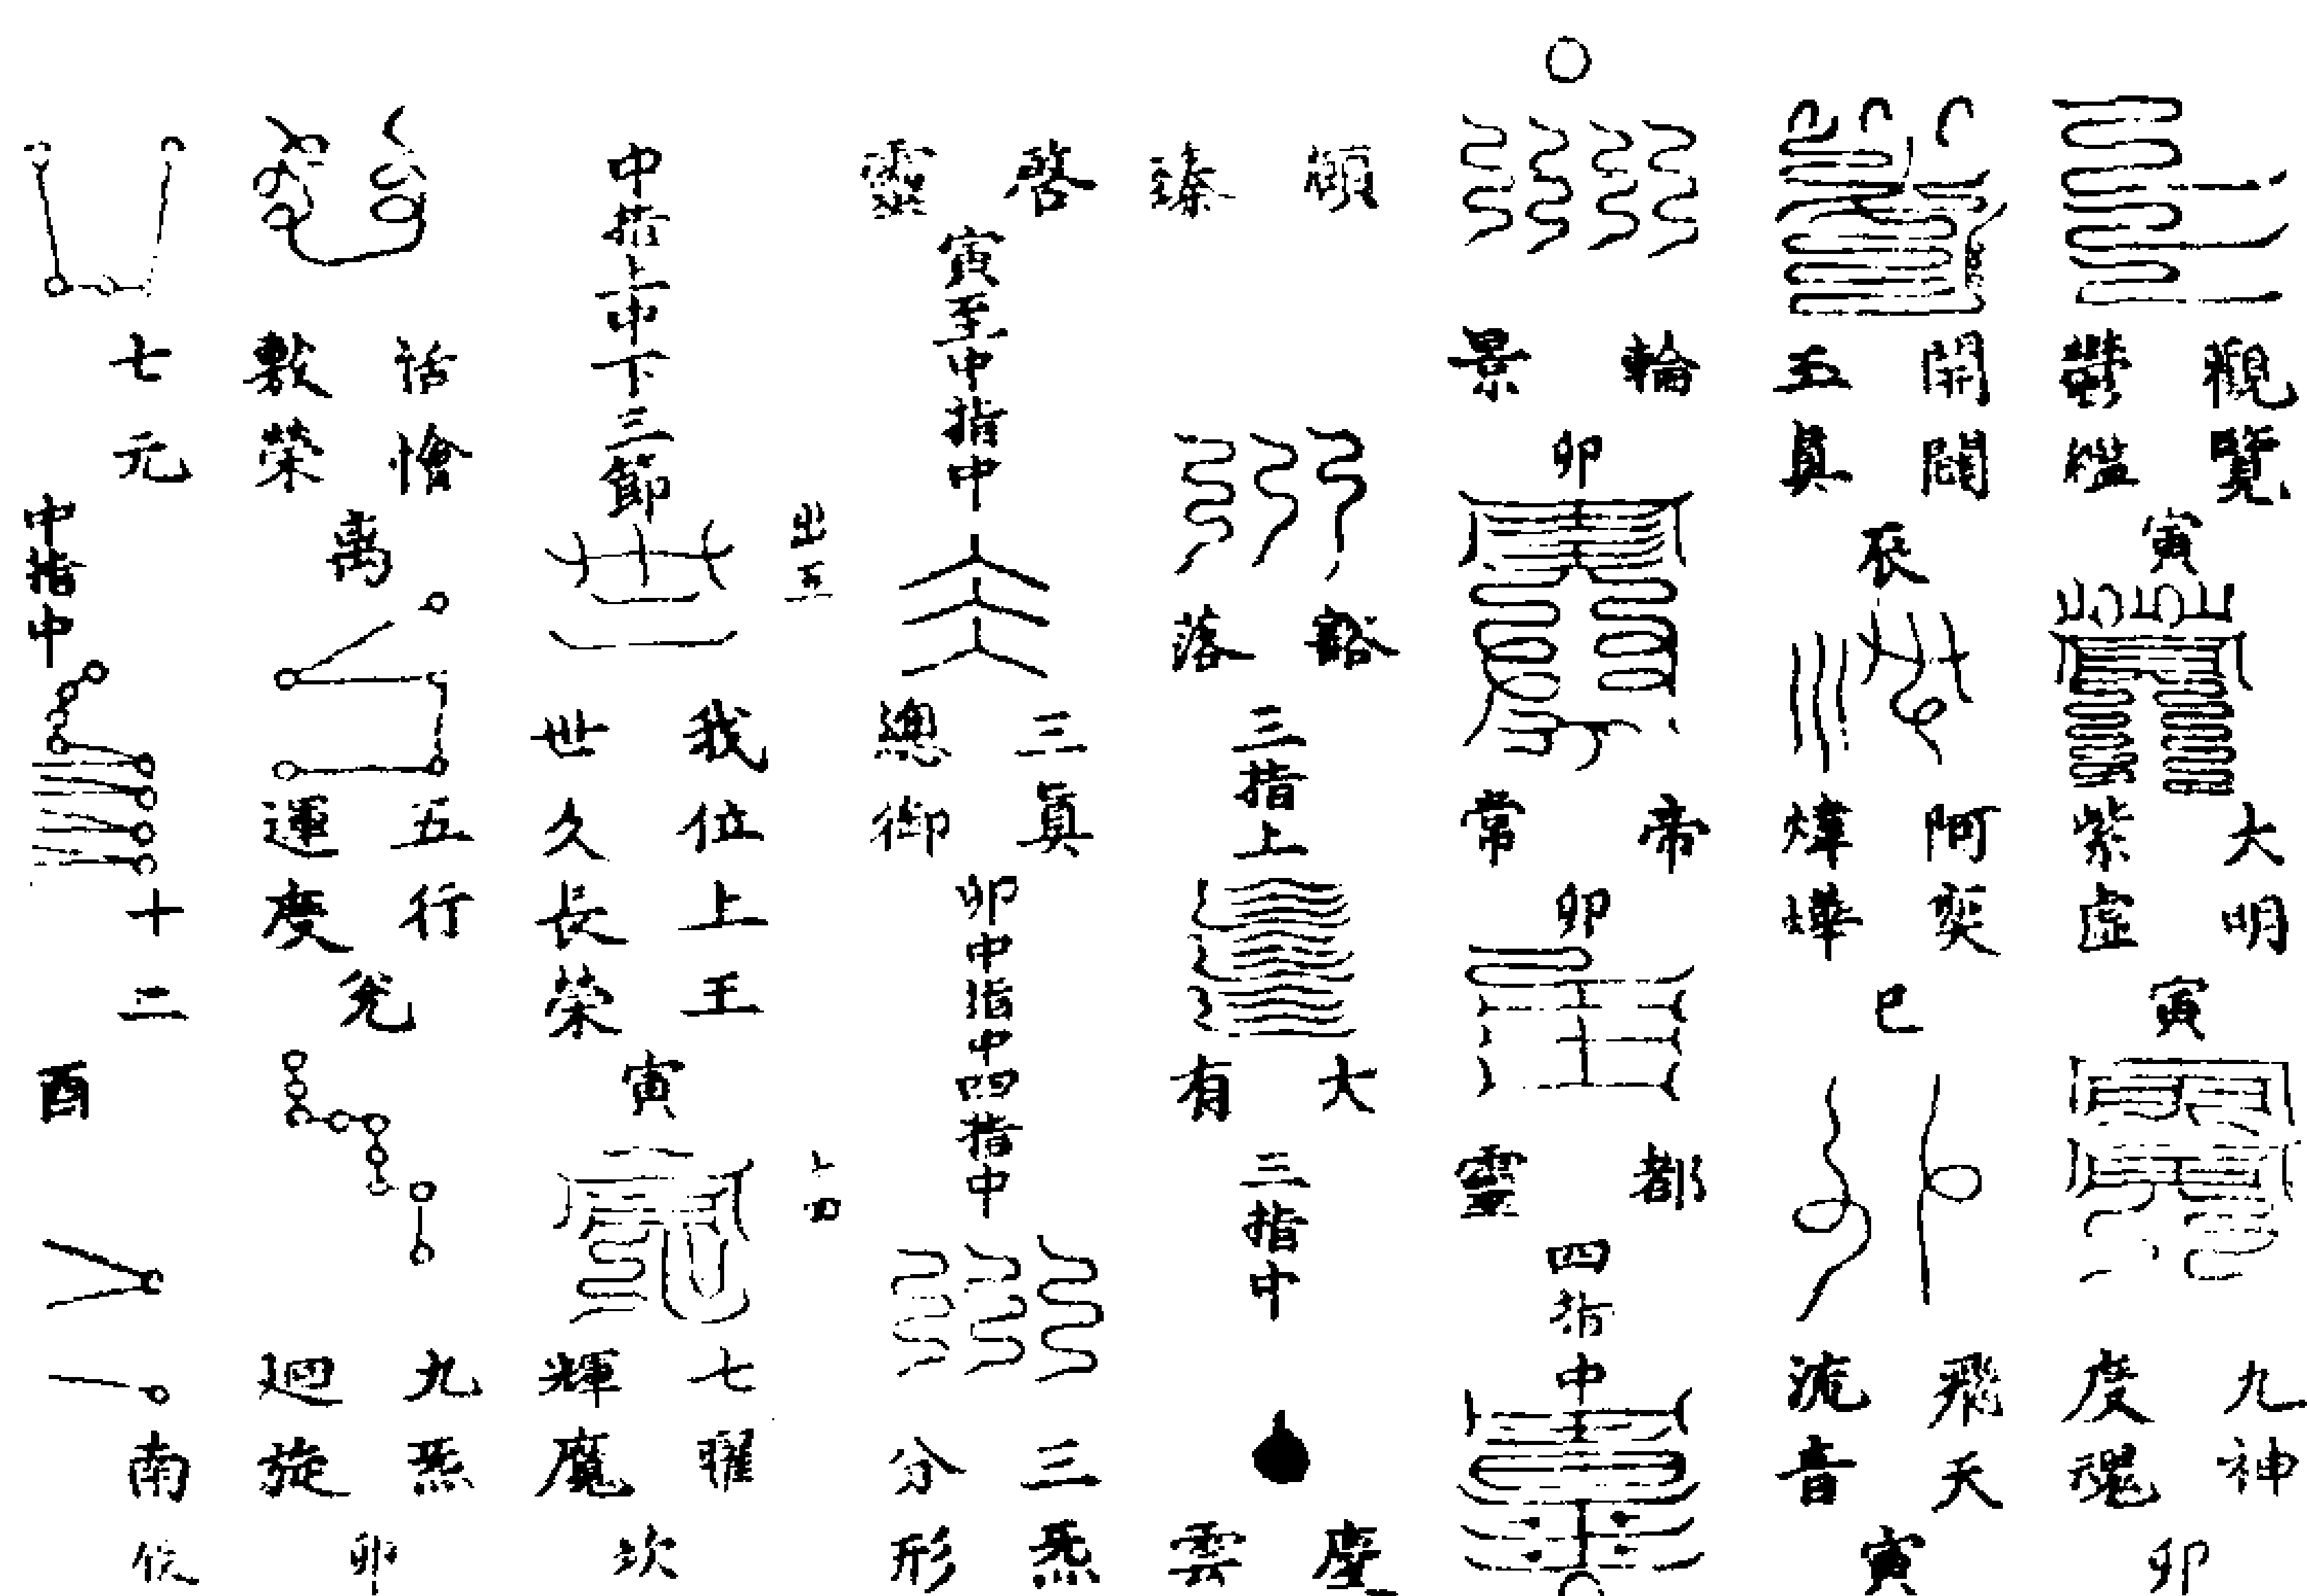 觀覽
欝檻
寅
大明
紫虛
寅
九神
度魂
卯
開闓
五真
辰
阿奕
煒燁
巳
飛天
流音
寅
輪
景
卯
帝
常
卯
都
靈
四指中
臻
豁
落
三指上
大
有
三指中
慶
雲
啓
靈
寅至中指中
三真
總御
卯中指中四指中
三炁
分形
出五
上四
中指上中下三節
我位上王
世久長榮
寅
七曜
輝魔
坎
敷榮
离
五行
運度
兊
九炁
迴旋
卯
七元
中指中
十二
酉
南